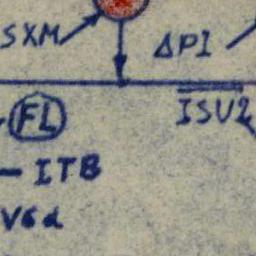 SXM
ΔPI
FL
ISU2
- ITB
V6d